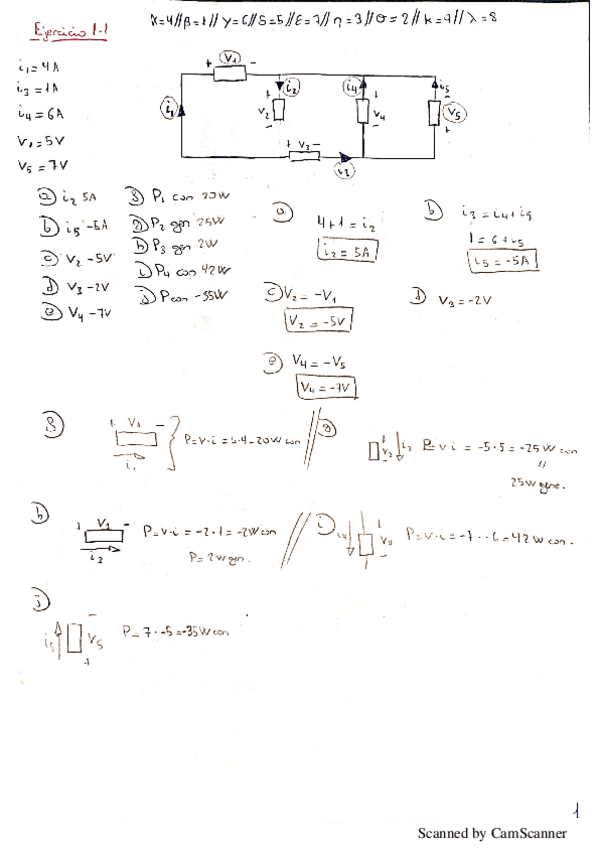 α=4//β=1//γ=6//δ=5//ε=7//η=3//θ=2//κ=9//λ=8
Ejercicio 1.1
i₁=4A
i₃=1A
i₄=6A
V₁=5V
V₅=7V
+ V₁ -
i₁
i₂
V₂
-
i₄
+
V₄
-
i₅
-
V₅
+
+ V₃ -
i₃
a) i₂ 5A
b) i₅ -5A
c) V₂ -5V
d) V₃ -2V
e) V₄ -7V
g) P₂ gen 25W
h) P₃ gen 2W
i) P₄ con 42W
j) Pcon -35W
a) 4+1=i₂
i₂=5A
b) i₃=i₄+i₅
1=6+i₅
i₅=-5A
c) V₂=-V₁
V₂=-5V
d) V₃=-2V
e) V₄=-V₅
V₄=-7V
+ V₁ -
i₁
P=V·i=
=20W con
V₂ i₂ P=V·i=-5·5=-25W con
25W gene.
h)
+ V₁ -
i₃
P=V·i=-2·1=-2W con
P=2W gen.
i) i₄
P=V·i=-7·-6=42W con.
j)
i₅
-
V₅
+
P=7·-5=-35W con
1
Scanned by CamScanner